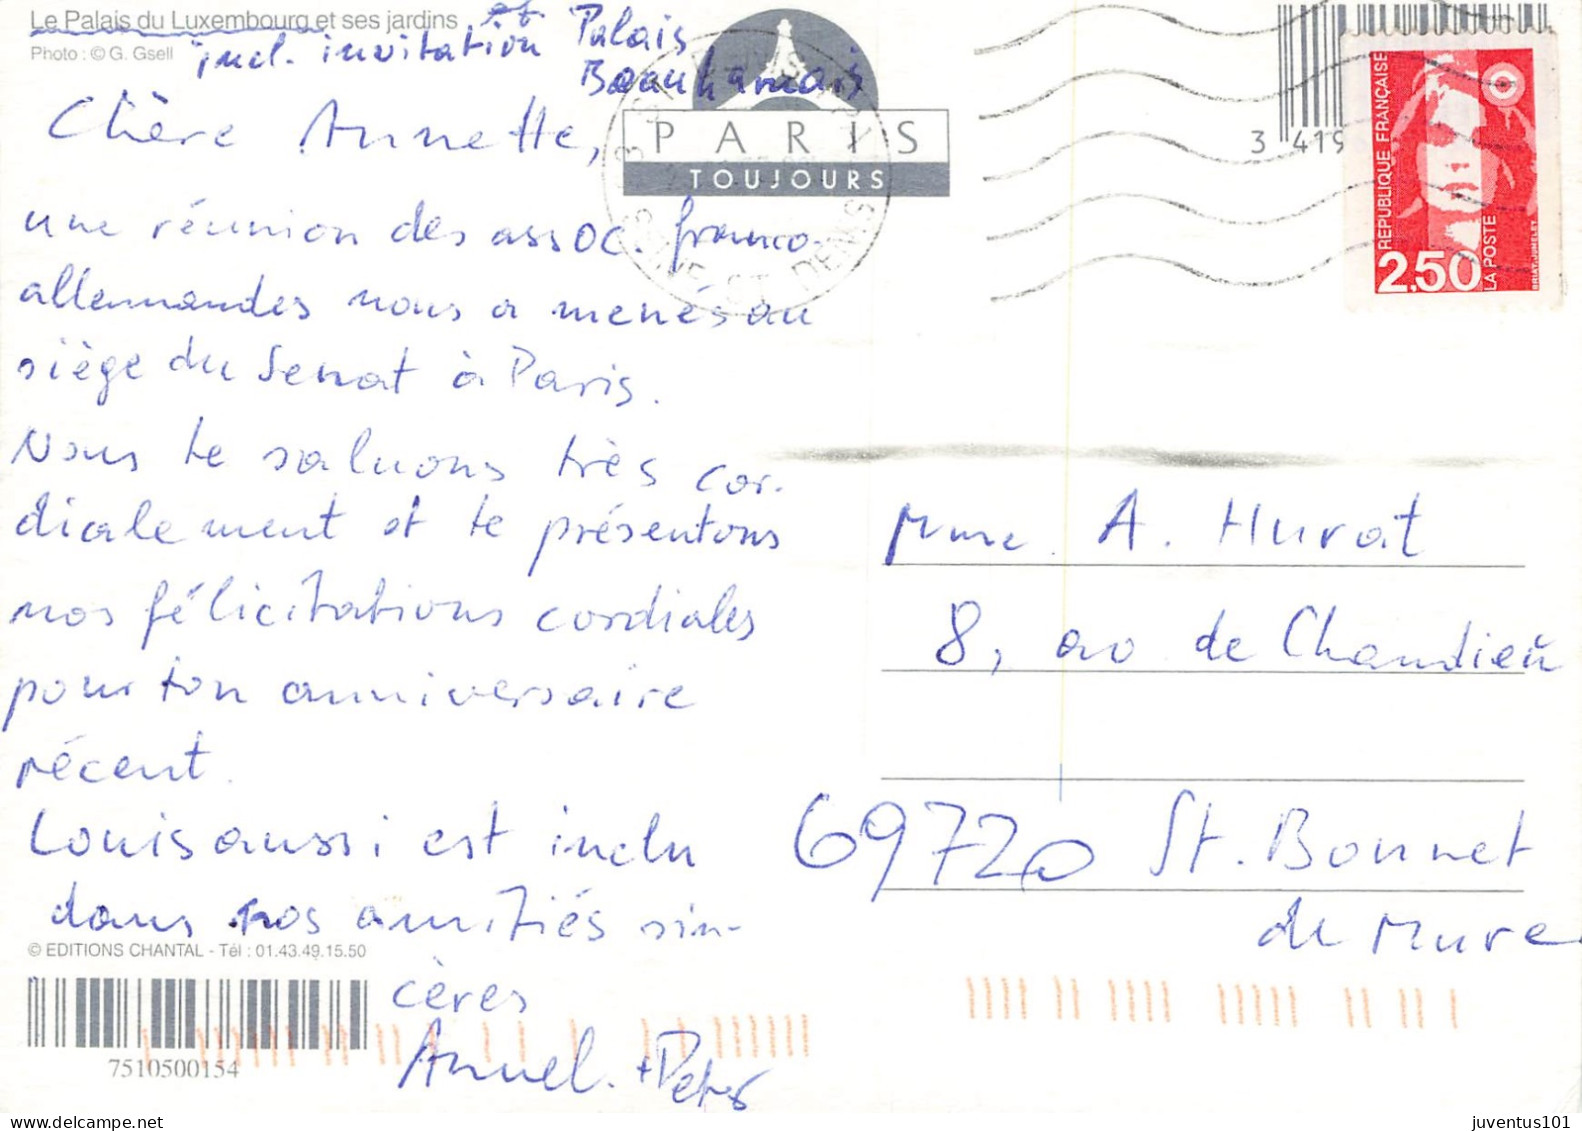 Le Palais du Luxembourg et ses jardins
Photo : © G. Gsell
et Palais
incl. invitation
Beauharnais
Chère Annette,
une réunion des assoc. franco-
allemandes nous a menés au
siège du Senat à Paris.
Nous te saluons très cor-
dialement et te présentons
nos félicitations cordiales
pour ton anniversaire
récent.
Louis aussi est inclu
dans nos amitiés sin-
cères
Annel. + Peter
© EDITIONS CHANTAL - Tél : 01.43.49.15.50
7510500154
PARIS
TOUJOURS
SEINE-ST-DENIS
3 419
REPUBLIQUE FRANÇAISE
2,50
LA POSTE
BRIAT-JUMELET
Mme A. Hurat
8, av de Chandieu
69720 St. Bonnet
de Mure
juventus101